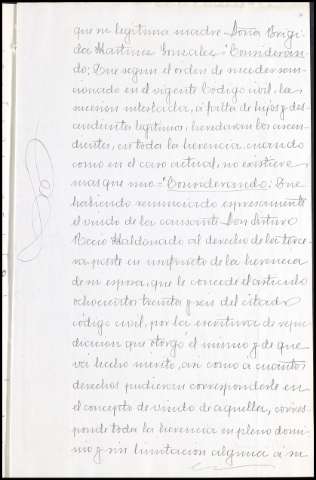 que su legitima madre Doña Brigi-
da Martinez Gonzalez = Consideran-
do; Que segun el orden de suceder san-
cionado en el vigente Codigo civil, la su-
cesion intestada, á falta de hijos y des-
cendientes legitimos, heredaran los ascen-
dientes, en toda la herencia, cuando
como en el caso actual, no existiere
mas que uno = Considerando: Que
habiendo renunciado expresamente
el viudo de la causante Don Arturo
Recio Maldonado al derecho de la terce-
ra parte en usufructo de la herencia
de su esposa, que le concede el articulo
ochocientos treinta y seis del citado
código civil, por la escritura de repu-
diacion que otorgó el mismo y de que
vá hecho merito, asi como a cuantos
derechos pudieran corresponderle en
el concepto de viudo de aquella, corres-
ponde toda la herencia en pleno domi-
nio y sin limitacion alguna á su